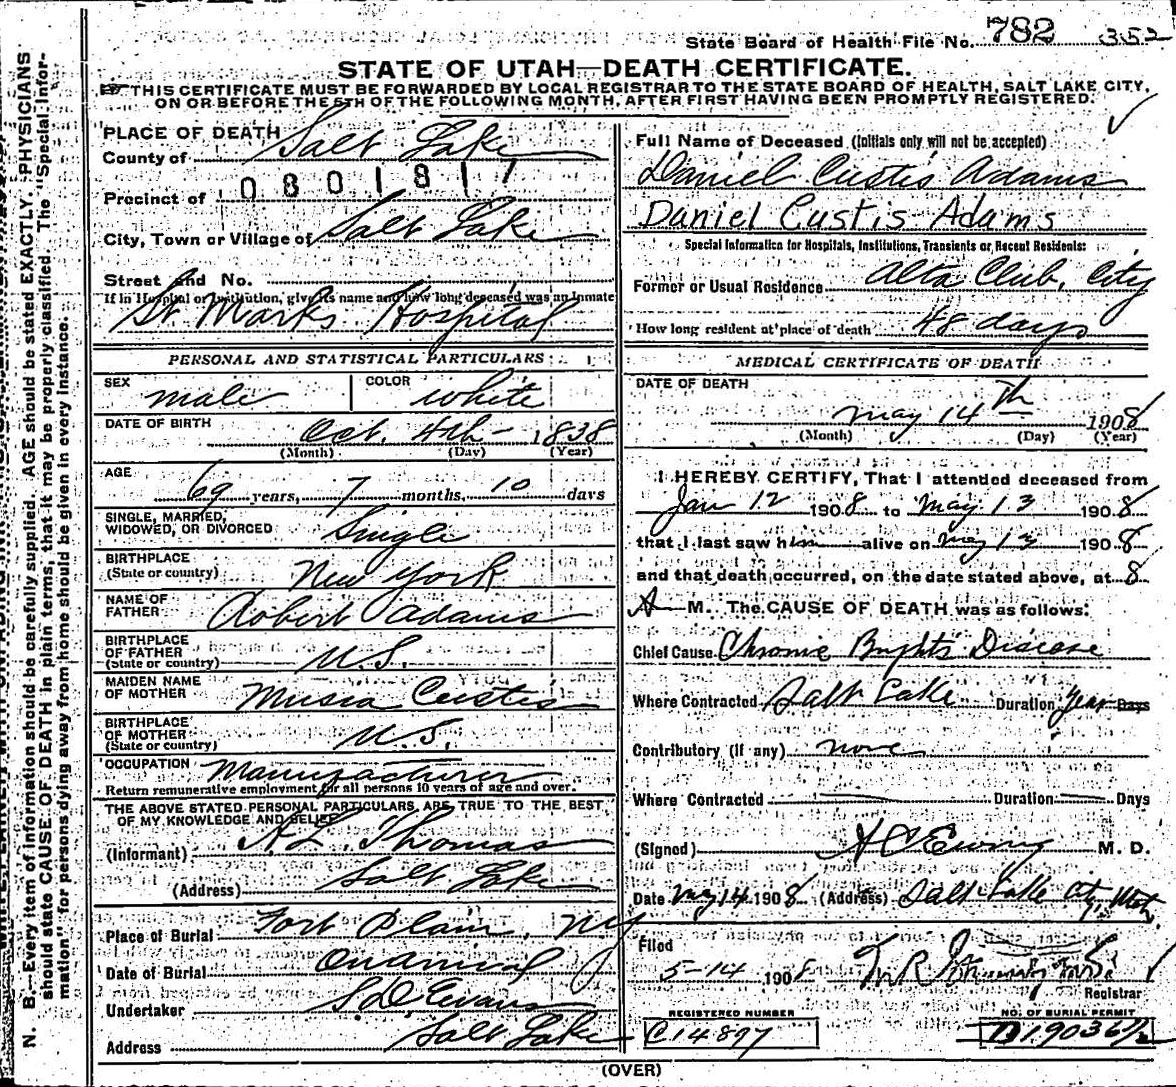 State Board of Health File No. 782 352
STATE OF UTAH—DEATH CERTIFICATE.
THIS CERTIFICATE MUST BE FORWARDED BY LOCAL REGISTRAR TO THE STATE BOARD OF HEALTH, SALT LAKE CITY,
ON OR BEFORE THE 5TH OF THE FOLLOWING MONTH, AFTER FIRST HAVING BEEN PROMPTLY REGISTERED.
N. B.—Every item of information should be carefully supplied. AGE should be stated EXACTLY. PHYSICIANS
should state CAUSE OF DEATH in plain terms, that it may be properly classified. The "Special Infor-
mation" for persons dying away from home should be given in every instance.
PLACE OF DEATH
County of Salt Lake
Precinct of 0801817
City, Town or Village of Salt Lake
Street and No.
If in Hospital or Institution, give its name and how long deceased was an Inmate
St. Marks Hospital
PERSONAL AND STATISTICAL PARTICULARS
SEX male COLOR white
DATE OF BIRTH Oct. 4th - 1838
(Month) (Day) (Year)
AGE 69 years, 7 months, 10 days
SINGLE, MARRIED,
WIDOWED, OR DIVORCED Single
BIRTHPLACE
(State or country) New York
NAME OF
FATHER Robert Adams
BIRTHPLACE
OF FATHER
(State or country) U.S.
MAIDEN NAME
OF MOTHER Custis
BIRTHPLACE
OF MOTHER
(State or country) U.S.
OCCUPATION Manufacturer
Return remunerative employment for all persons 10 years of age and over.
THE ABOVE STATED PERSONAL PARTICULARS ARE TRUE TO THE BEST
OF MY KNOWLEDGE AND BELIEF
(Informant) A.L. Thomas
(Address) Salt Lake
Place of Burial Fort Plain, NY
Date of Burial On arrival
Undertaker S.D. Evans
Address Salt Lake
Full Name of Deceased (Initials only will not be accepted)
Daniel Custis Adams
Daniel Custis Adams
Special Information for Hospitals, Institutions, Transients or Recent Residents:
Former or Usual Residence Alta Club, City
How long resident at place of death 48 days
MEDICAL CERTIFICATE OF DEATH
DATE OF DEATH
May 14th 1908
(Month) (Day) (Year)
I HEREBY CERTIFY, That I attended deceased from
Jan 12 1908 to May 13 1908
that I last saw him alive on May 13 1908
and that death occurred, on the date stated above, at 8
A M. The CAUSE OF DEATH was as follows:
Chief Cause Chronic Brights Disease
Where Contracted Salt Lake Duration Year Days
Contributory (if any) none
Where Contracted Duration Days
(Signed) H C Ewing M. D.
Date May 14 1908 (Address) Salt Lake City, Utah
Filed
5-14 1908
Registrar
REGISTERED NUMBER
C14897
NO. OF BURIAL PERMIT
(OVER)